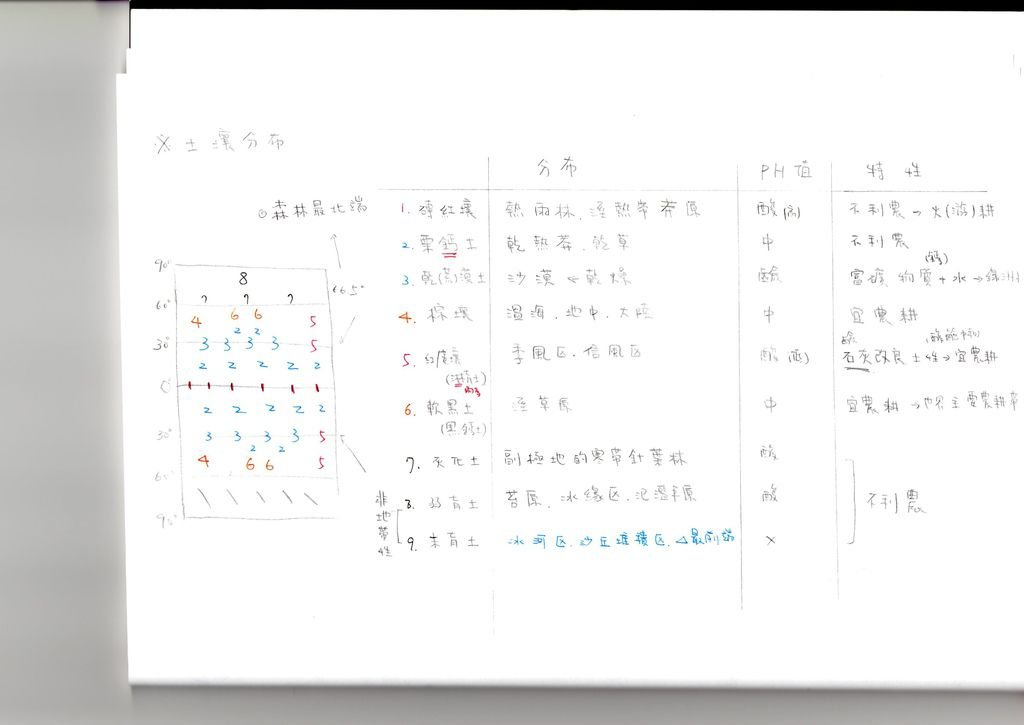 ※土壤分布
分布 PH值 特性
◎森林最北端
1. 磚紅壤 熱雨林、溼熱帶莽原 酸(高) 不利農→火(游)耕
2. 栗鈣土 乾熱莽、乾草 中 不利農
(鈣)
3. 乾(荒)漠土 沙漠←乾燥 鹼 富擴物質+水→綠洲
4. 棕壤 溫海、地中、大陸 中 宜農耕
5. 紅黃壤 季風区、信風区 酸 石灰改良土性→宜農耕
6. 軟黑土 溼草原 中 宜農耕→世界主要農耕帶
(黑鈣土)
7. 灰化土 副極地的寒帶針葉林 酸
8. 弱育土 苔原、冰緣区、氾濫平原 酸
9. 未育土 冰河区、沙丘堆積区、△最前端 ×
不利農
非地帶性
66.5°
90°
8
60° 7 7 7
4 6 6 5
2 2
30° 3 3 3 3 5
2 2 2 2 2
0° 1 1 1 1 1 1
2 2 2 2 2
30° 3 3 3 3 5
2 2
4 6 6 5
60°
\ \ \ \ \
90°